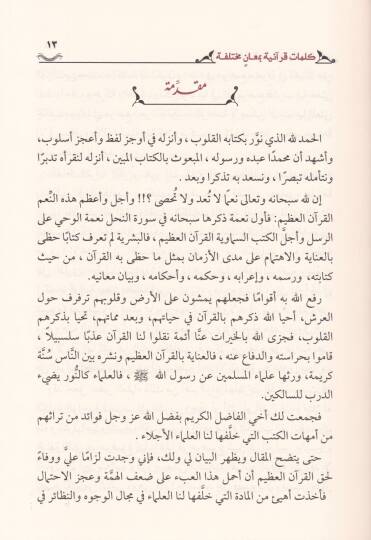 كلمات قرآنية بمعانٍ مختلفة
١٣
مقدِّمة
الحمد لله الذي نوَّر بكتابه القلوب ، وأنزله في أوجز لفظ وأعجز أسلوب،
وأشهد أن محمدًا عبده ورسوله ، المبعوث بالكتاب المبين ، أنزله لنقرأه تدبرًا
ونتأمله تبصرًا ، ونسعد به تذكرا وبعد .
إن لله سبحانه وتعالى نعمًا لا تُعد ولا تُحصى ؟!! وأجل وأعظم هذه النِّعم
القرآن العظيم: فأول نعمة ذكرها سبحانه في سورة النحل نعمة الوحي على
الرسل وأجلَّ الكتب السماوية القرآن العظيم ، فالبشرية لم تعرف كتابًا حظى
بالعناية والاهتمام على مدى الأزمان بمثل ما حظى به القرآن ، من حيث
كتابته، ورسمه ، وإعرابه ، وحكمه ، وأحكامه ، وبيان معانيه.
رفع الله به أقوامًا فجعلهم يمشون على الأرض وقلوبهم ترفرف حول
العرش، أحيا الله ذكرهم بالقرآن في حياتهم، وبعد مماتهم، تحيا بذكرهم
القلوب، فجزى الله بالخيرات عنَّا أئمة نقلوا لنا القرآن عذبًا سلسبيلاً ،
قاموا بحراسته والدفاع عنه ، فالعناية بالقرآن العظيم ونشره بين النَّاس سُنَّة
كريمة، ورثها علماء المسلمين عن رسول الله ﷺ ، فالعلماء كالنُّور يضيء
الدرب للسالكين.
فجمعت لك أخي الفاضل الكريم بفضل الله عز وجل فوائد من تراثهم
من أمهات الكتب التي خلَّفها لنا العلماء الأجلاء .
حتى يتضح المقال ويظهر البيان لي ولك، فإني وجدت لزامًا عليَّ ووفاءً
لحق القرآن العظيم أن أحمل هذا العبء على ضعف الهمَّة وعجز الاحتمال
فأخذت أهيئ من المادة التي خلَّفها لنا العلماء في مجال الوجوه والنظائر في